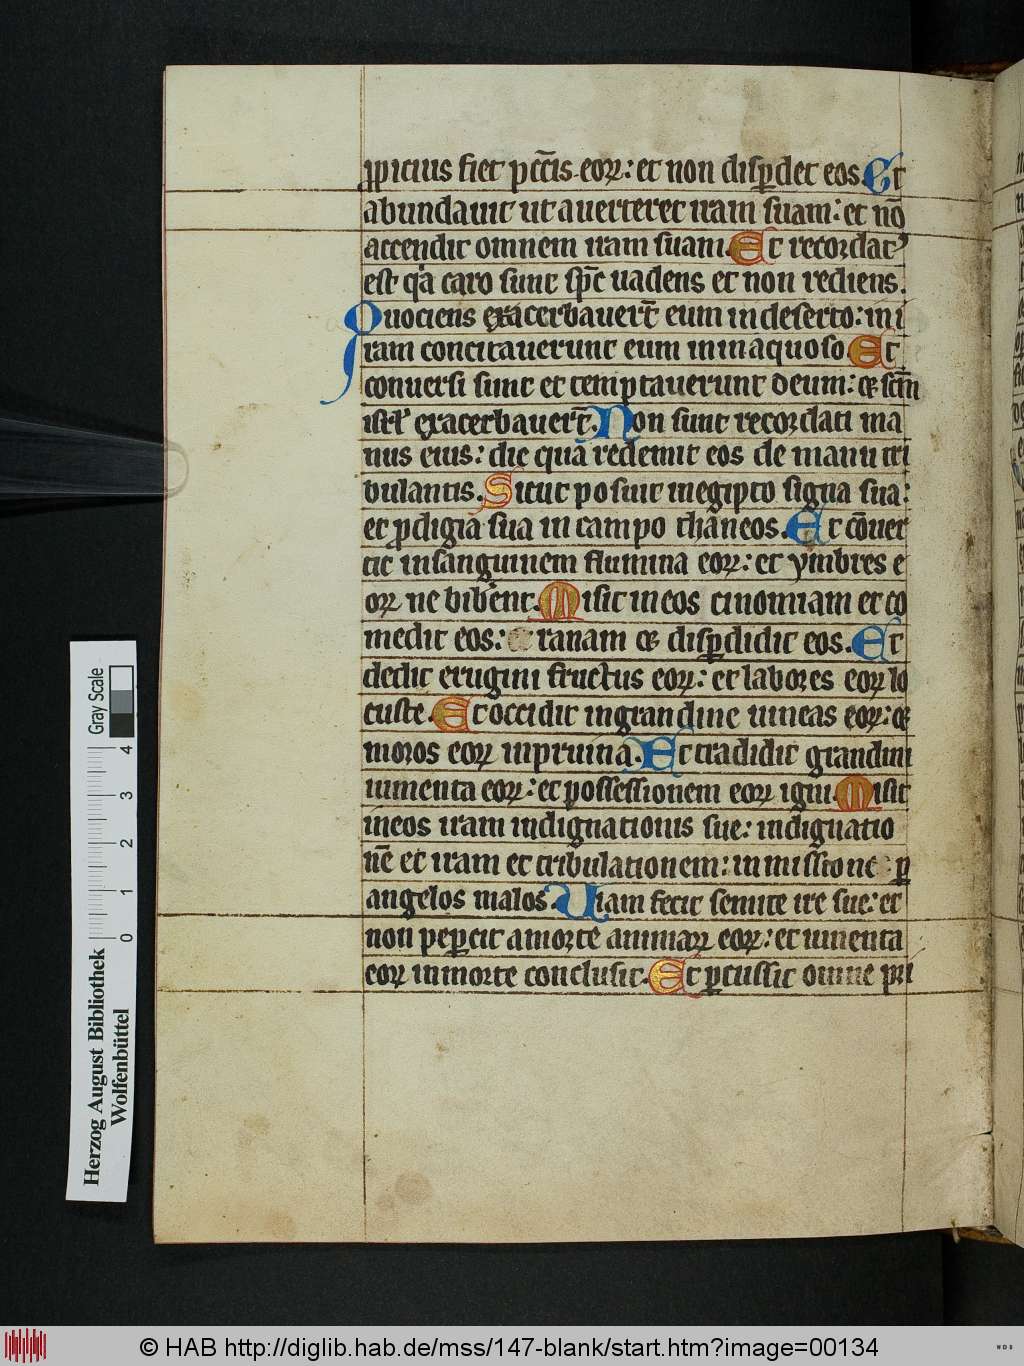 ꝓpicius fiet pcc̄is eoꝝ: et non disꝑdet eos. Et
abundauit ut auerteret iram suam: et nō
accendit omnem iram suam. Et recordatꝰ
est q̇a caro sunt sp̄c uadens et non rediens.
Quociens exacerbauer̄t eum in deserto: in i
iram concitauerunt eum in inaquoso. Et
conuersi sunt et temptauerunt deum: et sc̄m
isrl̕ exacerbauer̄t. Non sunt recordati ma
nus eius: die qua redemit eos de manu tri
bulantis. Sicut posuit in egipto signa sua:
et ꝓdigia sua in campo thaneos. Et cōuer
tit in sanguinem flumina eoꝝ: et ymbres e
oꝝ ne biberent. Misit in eos cinomiam et co
medit eos: ranam et disꝑdidit eos. Et
dedit erugini fructus eoꝝ: et labores eoꝝ lo
custe. Et occidit in grandine uineas eoꝝ: et
moros eoꝝ in pruina. Et tradidit grandini
iumenta eoꝝ: et possessionem eoꝝ igni. Misit
in eos iram indignationis sue: indignatio
nē et iram et tribulationem: inmissione ꝑ
angelos malos. Uiam fecit semite ire sue: et
non peꝑcit a morte animaꝝ eoꝝ: et iumenta
eoꝝ in morte conclusit. Et ꝑcussit omne pri
Herzog August Bibliothek
Wolfenbüttel
Gray Scale
0 1 2 3 4
© HAB http://diglib.hab.de/mss/147-blank/start.htm?image=00134